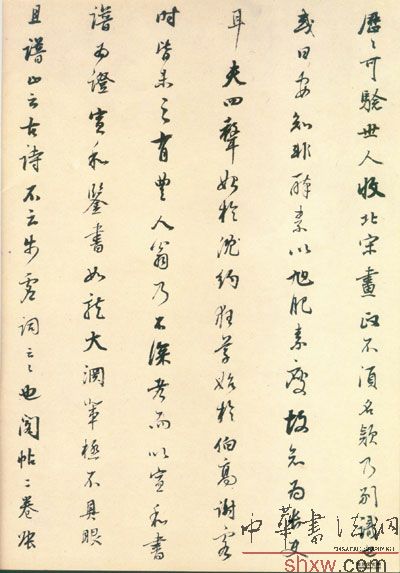 歷〻可驗世人收北宋畫政不須名款乃別識也
或曰安知非醉素以旭肥素瘦故知為
耳夫四聲始於沈約狂草始於伯高謝客
時皆未之有豐人翁乃不深考而以宣和書
譜為證宣和鑒書如龍大淵輩極不具眼
且譜止云古詩不云步虛詞云〻也閣帖二卷張
中華書法網
shxw.com